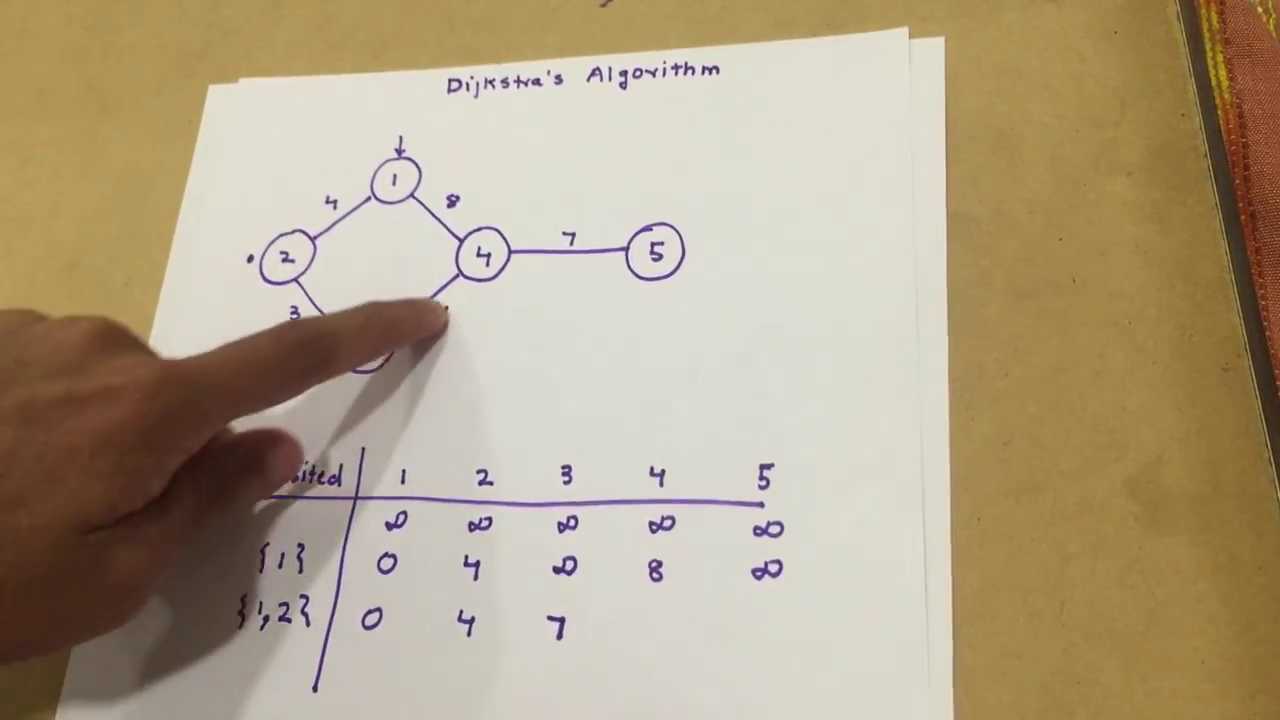 Dijkstra's Algorithm
1
4 8
2 4 7 5
3
1 2 3 4 5
∞ ∞ ∞ ∞ ∞
{1} 0 4 ∞ 8 ∞
{1,2} 0 4 7